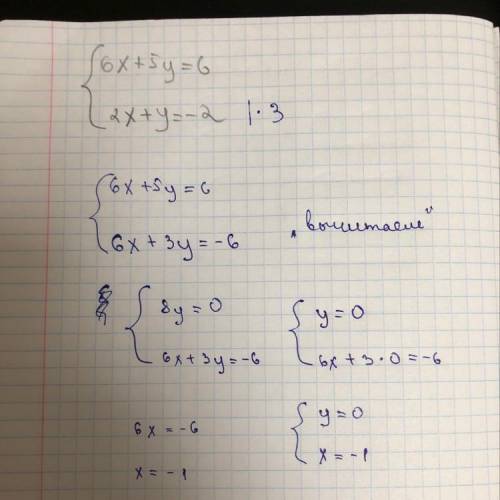 6x+5y=6
2x+y=-2 |·3
6x+5y=6
6x+3y=-6 „вычитаем"
8y=0
6x+3y=-6
y=0
6x+3·0=-6
6x=-6
x=-1
y=0
x=-1